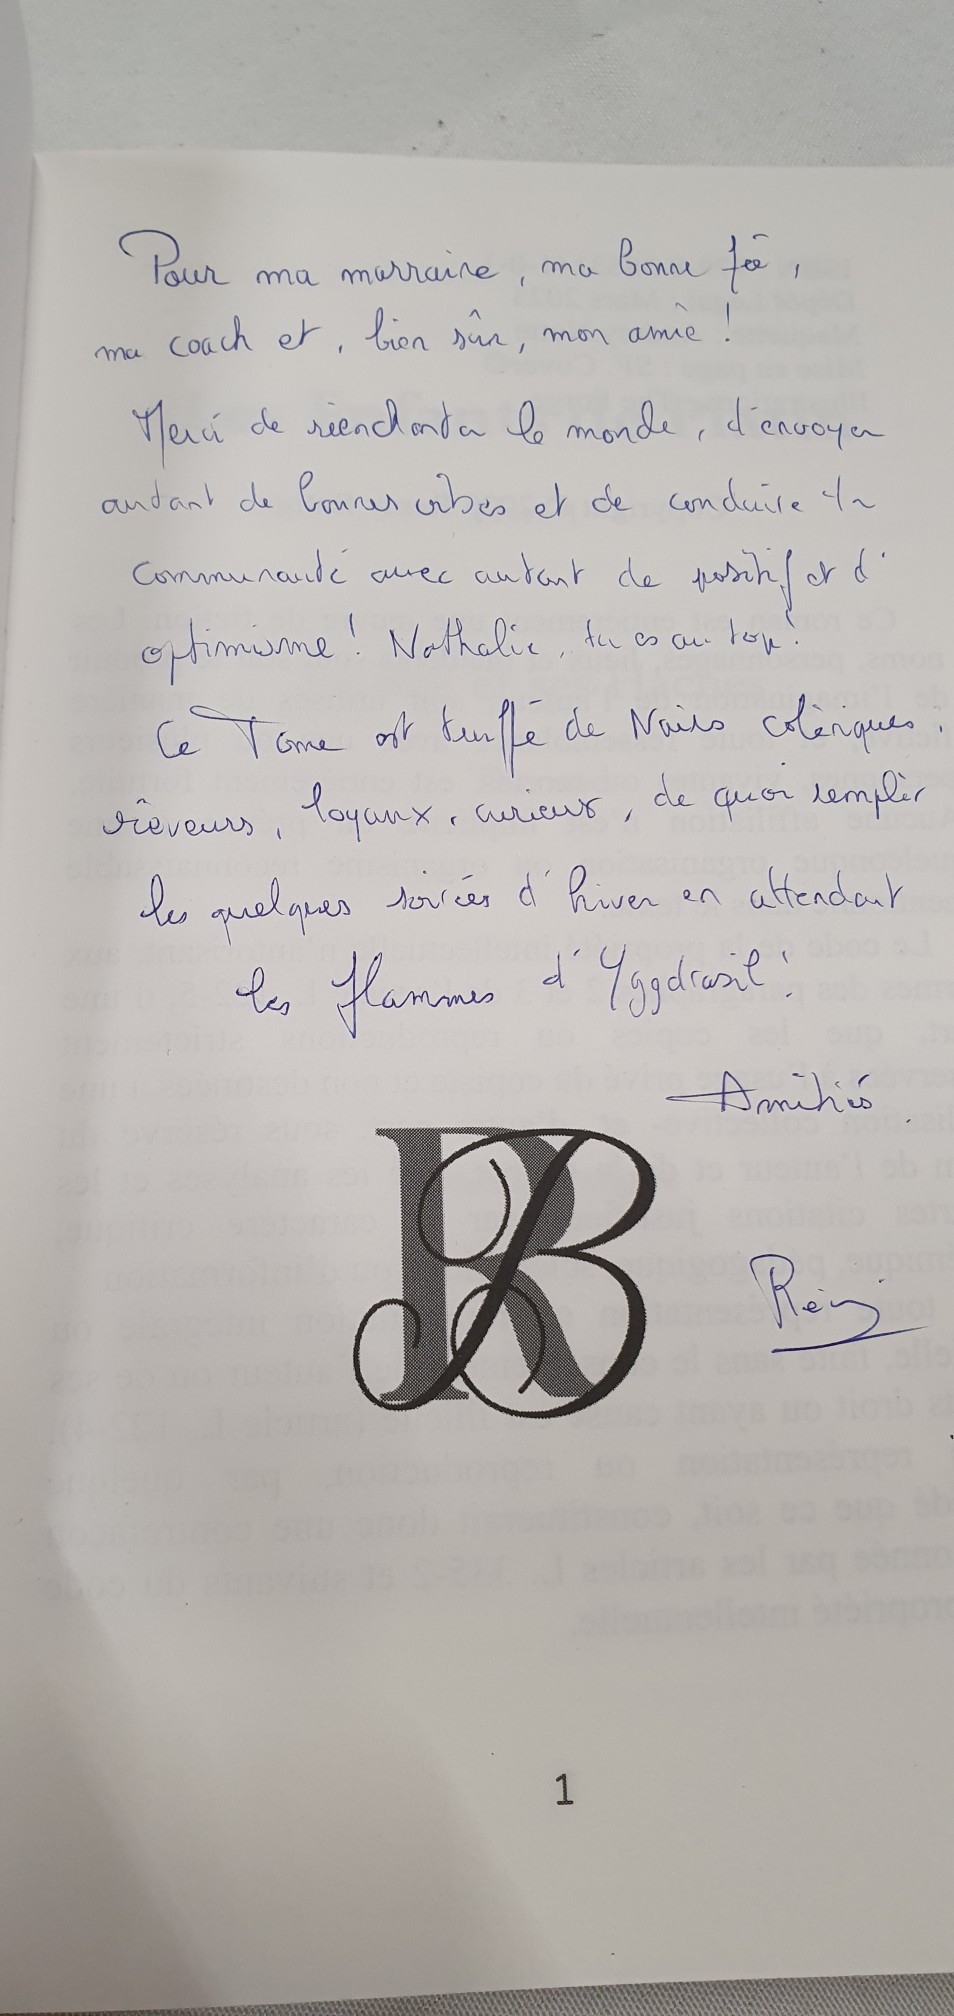 Pour ma marraine, ma bonne fée,
ma coach et, bien sûr, mon amie !
Merci de réenchanter le monde, d'envoyer
autant de bonnes vibes et de conduire ta
communauté avec autant de positif et d'
optimisme ! Nathalie, tu es au top !
Ce Tome est truffé de Nains colériques,
rêveurs, loyaux, curieux, de quoi remplir
les quelques soirées d'hiver en attendant
les flammes d'Yggdrasil !
Amitiés
RB
Rémi
1